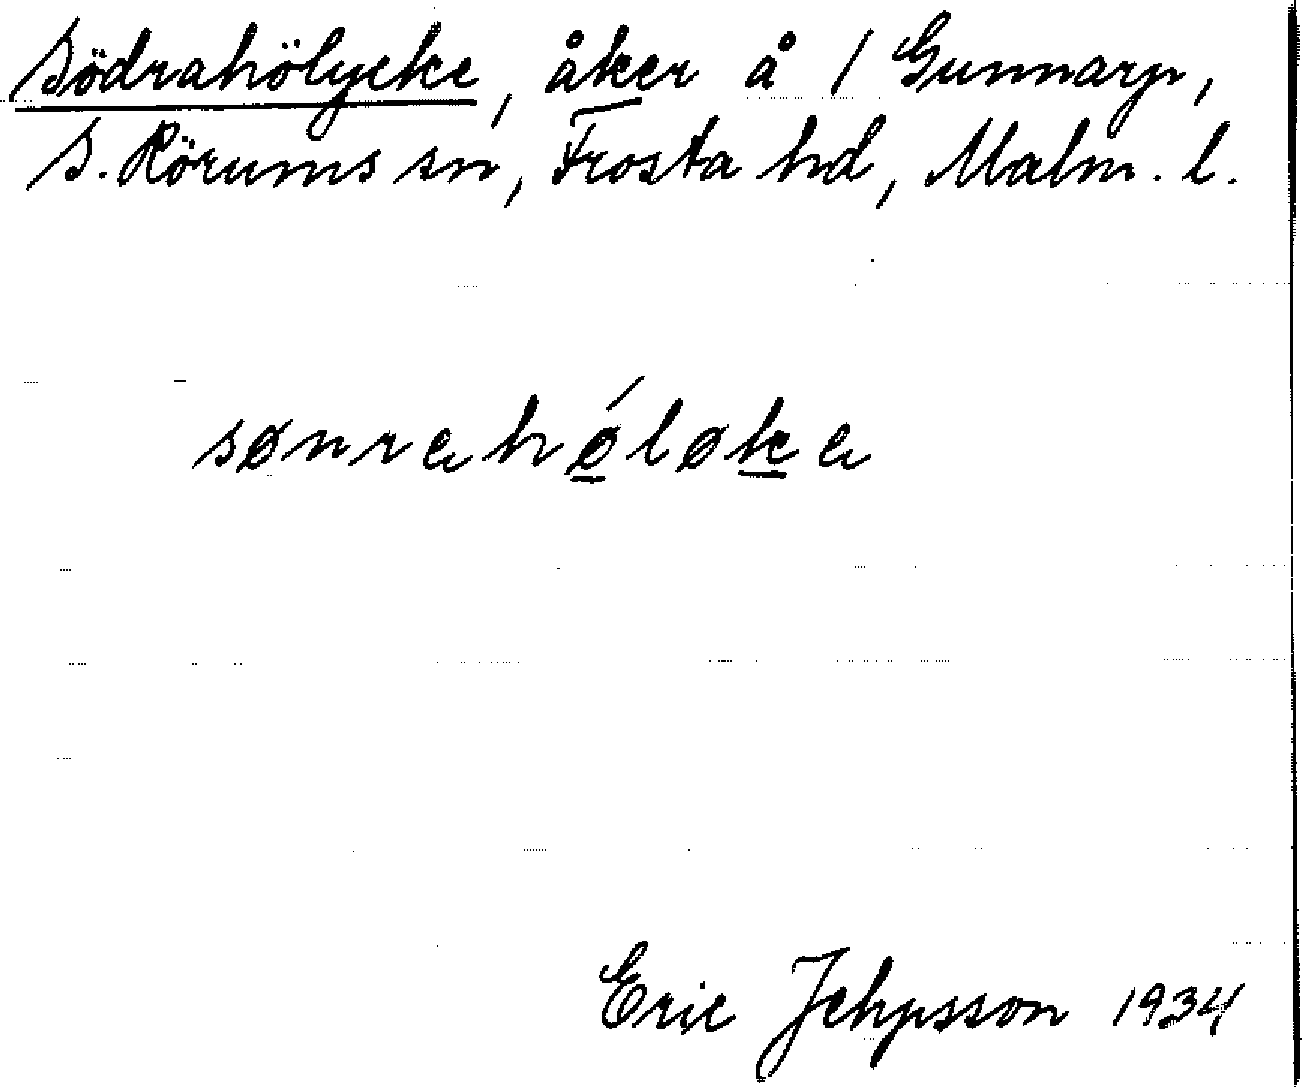 Södrahölycke, åker å 1 Gunnarp,
S. Rörums sn, Frosta hd, Malm. l.
sønrahǿløka
Eric Jehpsson 1934